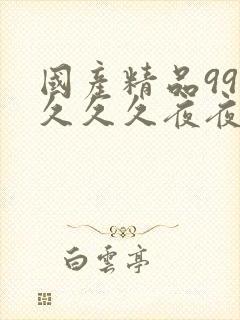 國產精品99
久久久夜夜
白雲亭